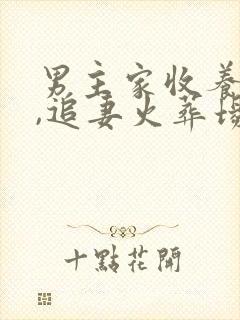 男主家收养
,追妻火葬场
十點花開